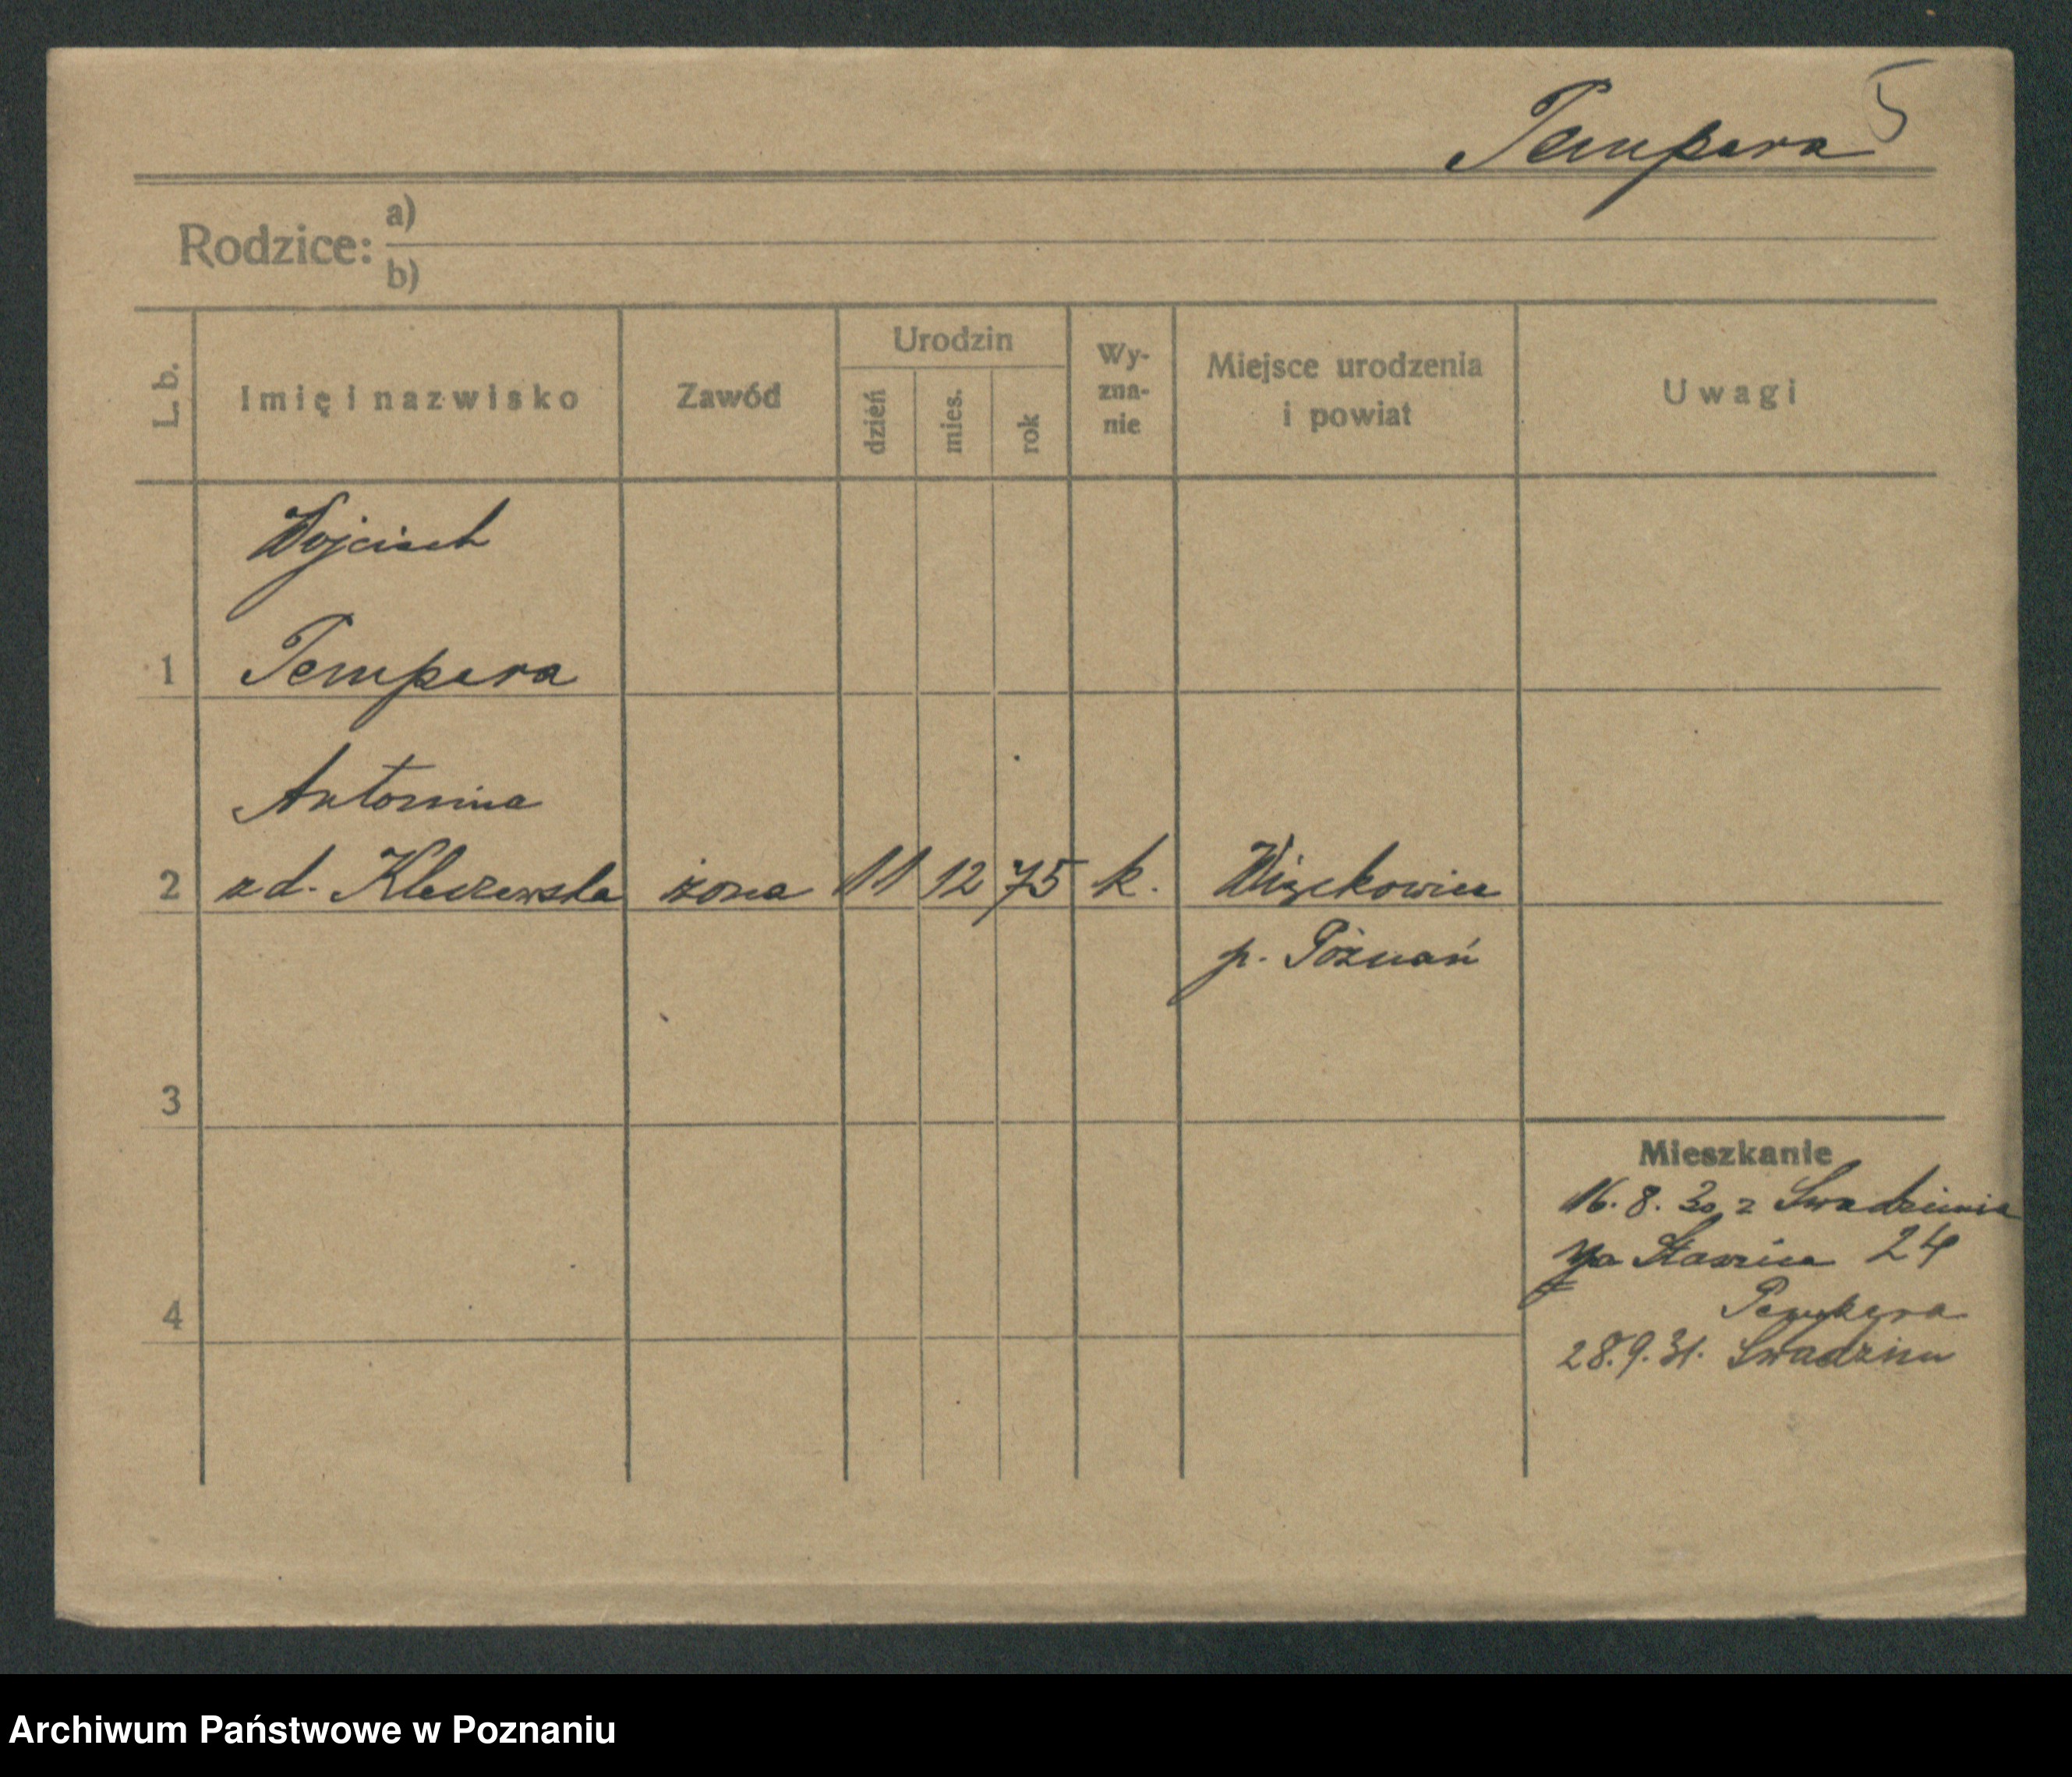 Tempera 5
Rodzice: a)
b)
L. b.
Imię i nazwisko
Zawód
Urodzin
dzień
mies.
rok
Wy-
zna-
nie
Miejsce urodzenia
i powiat
Uwagi
Wojciech
1 Tempera
Antonina
2 zd. Kleczewska żona 11 12 75 k. Więckowice
p. Poznań
3
4
Mieszkanie
16. 8. 30 z Swadzimia
Sławica 24
Tempera
28. 9. 31. Swadzim
Archiwum Państwowe w Poznaniu